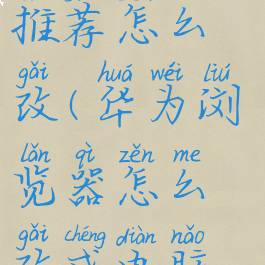 推荐怎么
gǎi huá wéi liú
改(华为浏
lǎn qì zěn me
览器怎么
gǎi chéng diàn nǎo